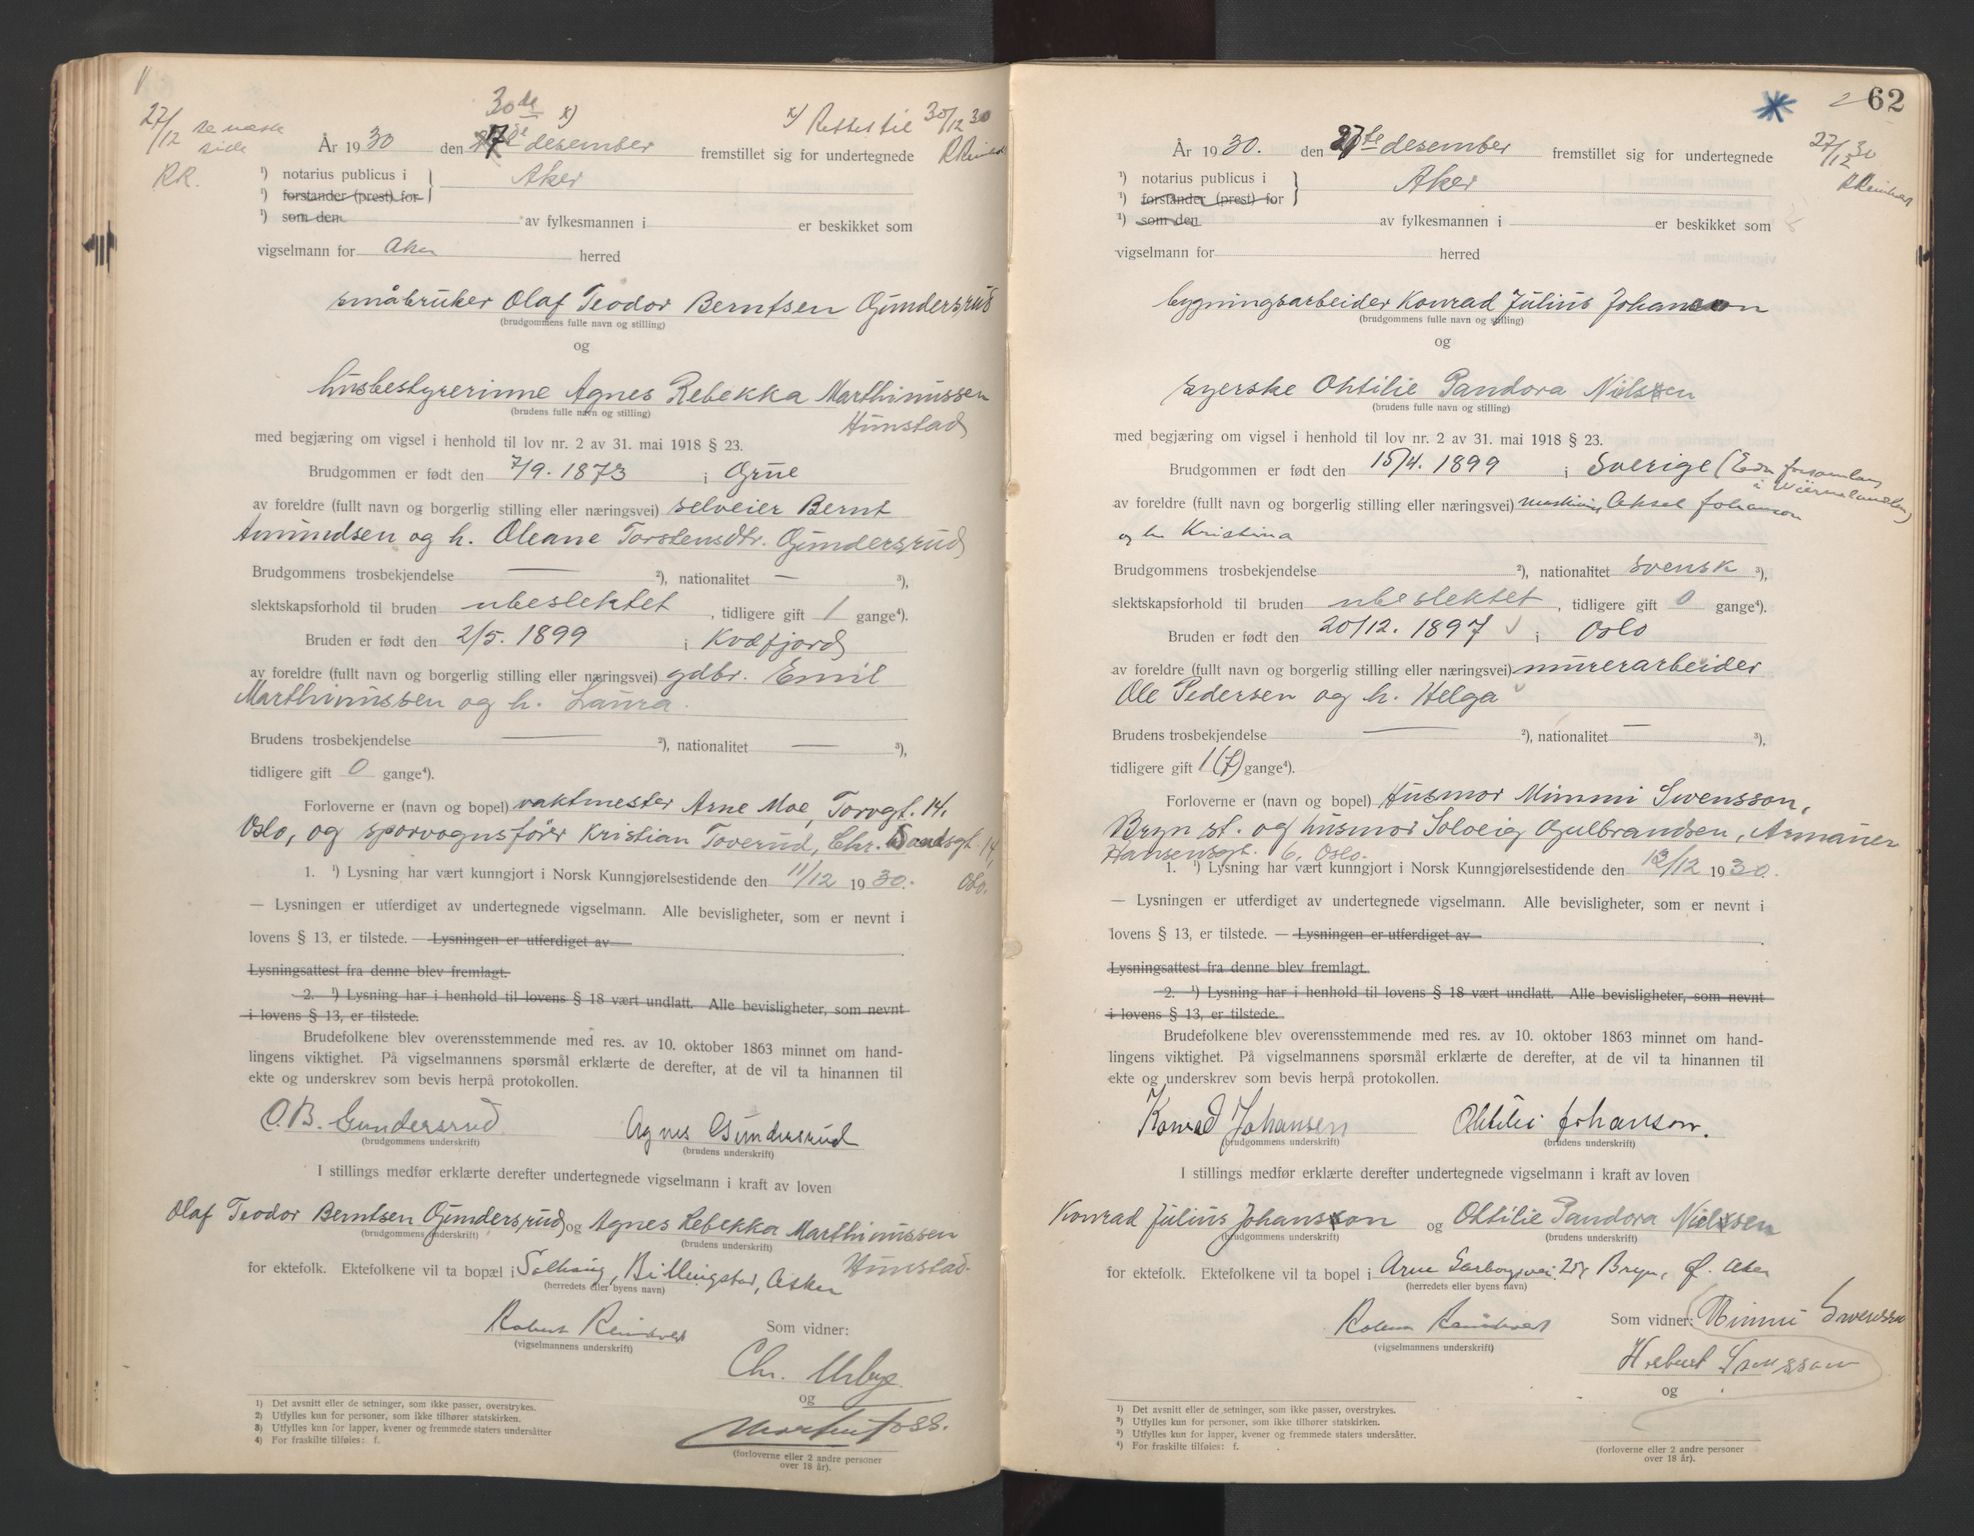 27/12 se næste
side
RR.
30de x)
x) Rettet til 30/12 30
År 1930 den 17de desember fremstillet sig for undertegnede
¹) notarius publicus i
¹) forstander (prest) for
Aker
¹) som den av fylkesmannen i er beskikket som
vigselmann for Aker herred
småbruker Olaf Teodor Berntsen Gundersrud
(brudgommens fulle navn og stilling)
og
husbestyrerinne Agnes Rebekka Marthinussen
(brudens fulle navn og stilling)
Hunstad
med begjæring om vigsel i henhold til lov nr. 2 av 31. mai 1918 § 23.
Brudgommen er født den 7/9. 1873 i Grue
av foreldre (fullt navn og borgerlig stilling eller næringsvei) selveier Bernt
Amundsen og h. Oleane Torstensdtr. Gundersrud
Brudgommens trosbekjendelse — ²), nationalitet — ³),
slektskapsforhold til bruden ubeslektet, tidligere gift 1 gange⁴).
Bruden er født den 2/5. 1899 i Kvæfjord
av foreldre (fullt navn og borgerlig stilling eller næringsvei) gdbr. Emil
Marthinussen og h. Laura.
Brudens trosbekjendelse — ²), nationalitet — ³),
tidligere gift 0 gange⁴).
Forloverne er (navn og bopel) vaktmester Arne Moe, Torvgt. 14.
Oslo, og sporvognsfører Kristian Toverud, Chr. Sandsgt. 14,
Oslo.
1. ¹) Lysning har vært kunngjort i Norsk Kunngjørelsestidende den 11/12 1930.
— Lysningen er utferdiget av undertegnede vigselmann. Alle bevisligheter, som er nevnt i
lovens § 13, er tilstede. — Lysningen er utferdiget av
Lysningsattest fra denne blev fremlagt.
2. ¹) Lysning har i henhold til lovens § 18 vært undlatt. Alle bevisligheter, som nevnt
i lovens § 13, er tilstede.
Brudefolkene blev overensstemmende med res. av 10. oktober 1863 minnet om hand-
lingens viktighet. På vigselmannens spørsmål erklærte de derefter, at de vil ta hinannen til
ekte og underskrev som bevis herpå protokollen.
O.B. Gundersrud Agnes Gundersrud
(brudgommens underskrift) (brudens underskrift)
I stillings medfør erklærte derefter undertegnede vigselmann i kraft av loven
Olaf Teodor Berntsen Gundersrud og Agnes Rebekka Marthinussen
(brudgommens underskrift) (brudens underskrift)
Hunstad.
for ektefolk. Ektefolkene vil ta bopæl i Solhaug, Billingstad, Asker
(herredets eller byens navn)
Robert Reinhart Som vidner:
(vigselmannens underskrift)
Chr. Urbye.
og
Morten Foss.
(forloverne eller 2 andre personer
over 18 år).
1) Det avsnitt eller de setninger, som ikke passer, overstrykes.
2) Utfylles kun for personer, som ikke tilhører statskirken.
3) Utfylles kun for lapper, kvener og fremmede staters undersåtter
4) For fraskilte tilføies: f.
62
27/12 30
År 1930. den 27de desember fremstillet sig for undertegnede
¹) notarius publicus i
¹) forstander (prest) for
Aker
¹) som den av fylkesmannen i er beskikket som
vigselmann for herred
bygningsarbeider Konrad Julius Johanson
(brudgommens fulle navn og stilling)
og
syerske Ohtilie Pandora Nielsen
(brudens fulle navn og stilling)
med begjæring om vigsel i henhold til lov nr. 2 av 31. mai 1918 § 23.
Brudgommen er født den 15/4. 1899 i Sverige (Eda forsamling
i Wärmeland)
av foreldre (fullt navn og borgerlig stilling eller næringsvei) Aksel Johanson
og h. Kristina
Brudgommens trosbekjendelse ²), nationalitet svensk ³),
slektskapsforhold til bruden ubeslektet, tidligere gift 0 gange⁴).
Bruden er født den 20/12. 1897 i Oslo
av foreldre (fullt navn og borgerlig stilling eller næringsvei) murerarbeider
Ole Pedersen og h. Helga
Brudens trosbekjendelse — ²), nationalitet — ³),
tidligere gift 1 (f) gange⁴).
Forloverne er (navn og bopel) Husmor Mimmi Swensson,
Bryn st. og husmor Solveig Gulbrandsen, Armauer
Hansensgt. 6, Oslo.
1. ¹) Lysning har vært kunngjort i Norsk Kunngjørelsestidende den 13/12 1930.
— Lysningen er utferdiget av undertegnede vigselmann. Alle bevisligheter, som er nevnt i
lovens § 13, er tilstede. — Lysningen er utferdiget av
Lysningsattest fra denne blev fremlagt.
2. ¹) Lysning har i henhold til lovens § 18 vært undlatt. Alle bevisligheter, som nevnt
i lovens § 13, er tilstede.
Brudefolkene blev overensstemmende med res. av 10. oktober 1863 minnet om hand-
lingens viktighet. På vigselmannens spørsmål erklærte de derefter, at de vil ta hinannen til
ekte og underskrev som bevis herpå protokollen.
Konrad Johansen Ohtilie Johanson.
(brudgommens underskrift) (brudens underskrift)
I stillings medfør erklærte derefter undertegnede vigselmann i kraft av loven
Konrad Julius Johanson og Ohtilie Pandora Nielsen
(brudgommens underskrift) (brudens underskrift)
for ektefolk. Ektefolkene vil ta bopel i Arne Garborgsvei 25, Bryn, Ø. Aker
(herredets eller byens navn)
Robert Reinhart Som vidner: Mimmi Swensson
(vigselmannens underskrift)
Herbert Swensson
og
(forloverne eller 2 andre personer
over 18 år).
¹) Det avsnitt eller de setninger, som ikke passer, overstrykes.
²) Utfylles kun for personer, som ikke tilhører statskirken.
³) Utfylles kun for lapper, kvener og fremmede staters undersåtter.
⁴) For fraskilte tilføies: f.